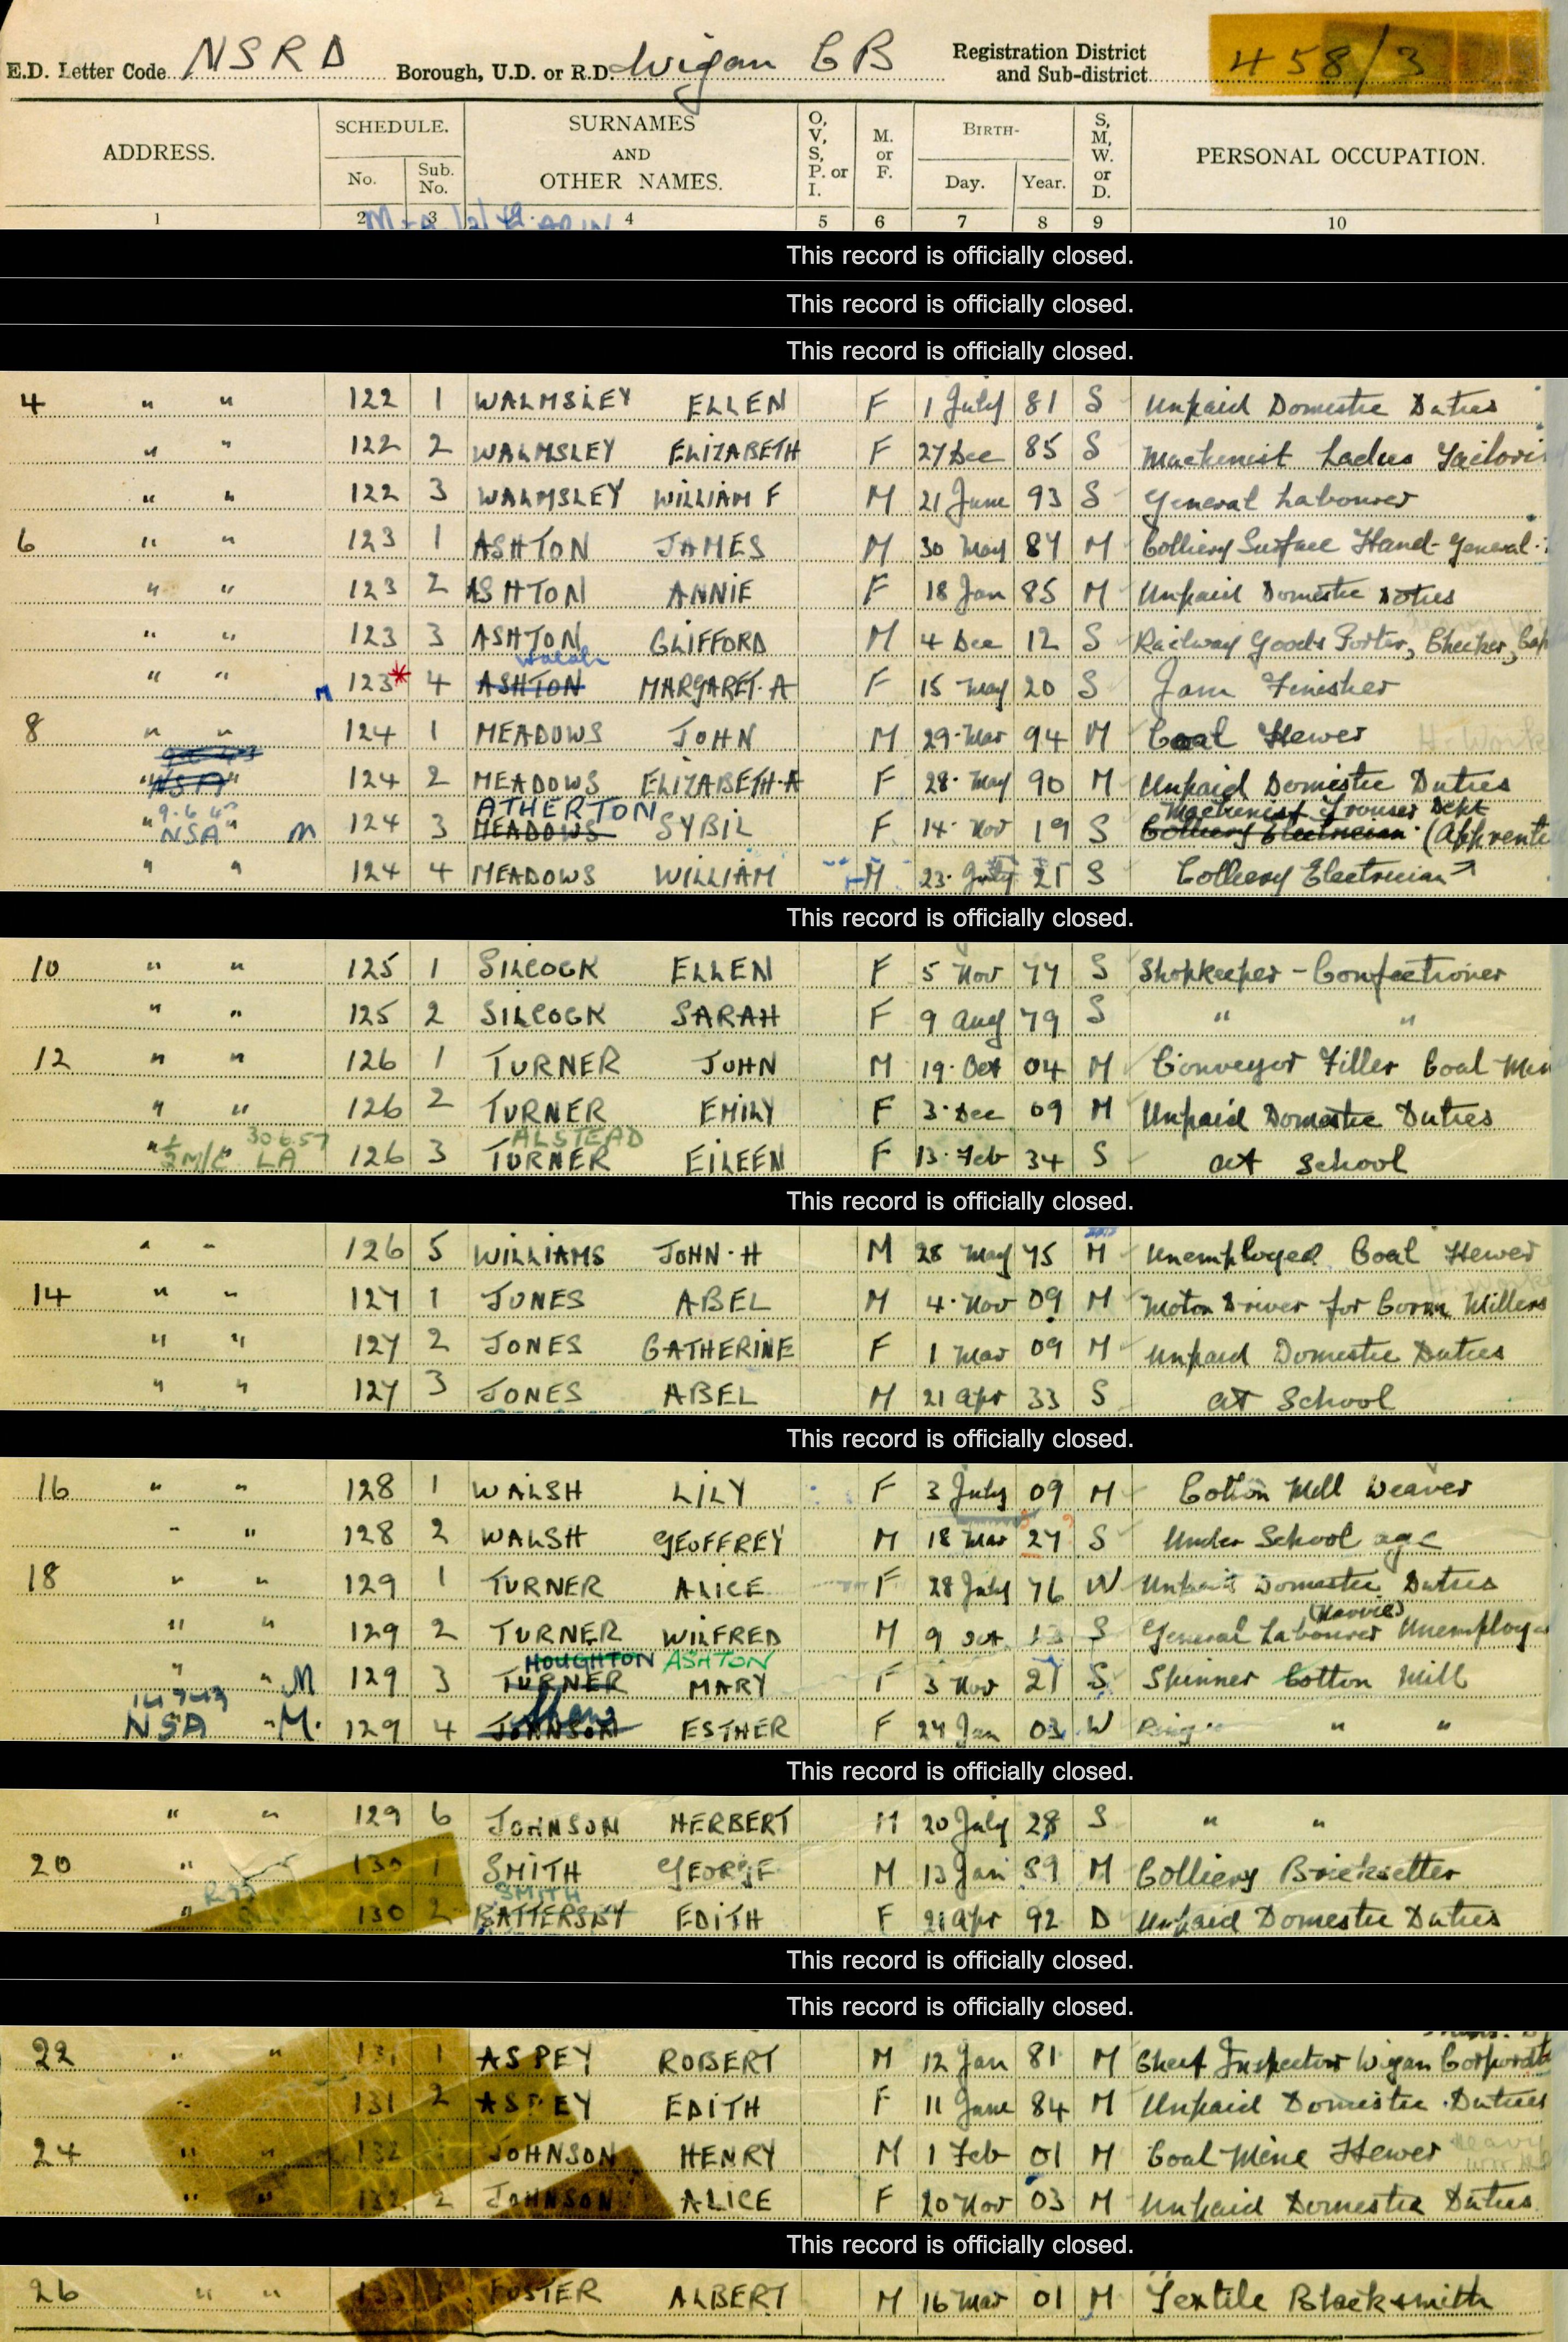 E.D. Letter Code NSRD Borough, U.D. or R.D. Wigan CB Registration District and Sub-district 458/3
ADDRESS. SCHEDULE. No. Sub. No. SURNAMES AND OTHER NAMES. O, V, S, P. or I. M. or F. BIRTH- Day. Year. S, M, W. or D. PERSONAL OCCUPATION.
1 2 3 4 5 6 7 8 9 10
This record is officially closed.
This record is officially closed.
This record is officially closed.
4 " " 122 1 WALMSLEY ELLEN F 1 July 81 S Unpaid Domestic Duties
" " 122 2 WALMSLEY ELIZABETH F 27 Dec 85 S Machinist Ladies Tailori
" " 122 3 WALMSLEY WILLIAM F M 21 June 93 S General Labourer
6 " " 123 1 ASHTON JAMES M 30 May 87 M Colliery Surface Hand - General
" " 123 2 ASHTON ANNIE F 18 Jan 85 M Unpaid Domestic Duties
" " 123 3 ASHTON CLIFFORD M 4 Dec 12 S Railway Goods Porter, Checker,
Walsh
" " M 123* 4 ASHTON MARGARET. A F 15 May 20 S Jam Finisher
8 " " 124 1 MEADOWS JOHN M 29. Mar 94 M Coal Hewer
" NSA " 124 2 MEADOWS ELIZABETH. A F 28. May 90 M Unpaid Domestic Duties
9.6.45 ATHERTON Machinist Trouser Dept
" NSA " M 124 3 MEADOWS SYBIL F 14. Nov 19 S Colliery Electrician (Apprenti
" " 124 4 MEADOWS WILLIAM M 23. July 21 S Colliery Electrician
This record is officially closed.
10 " " 125 1 SILCOCK ELLEN F 5 Nov 77 S Shopkeeper - Confectioner
" " 125 2 SILCOCK SARAH F 9 Aug 79 S " "
12 " " 126 1 TURNER JOHN M 19. Oct 04 M Conveyor Filler Coal Min
" " 126 2 TURNER EMILY F 3. Dec 09 M Unpaid Domestic Duties
30.6.57 ALSTEAD
" M/C " LA 126 3 TURNER EILEEN F 13. Feb 34 S at School
This record is officially closed.
" " 126 5 WILLIAMS JOHN. H M 28 May 75 M Unemployed Coal Hewer
14 " " 127 1 JONES ABEL M 4. Nov 09 M Motor Driver for Corn Millers
" " 127 2 JONES CATHERINE F 1 Mar 09 M Unpaid Domestic Duties
" " 127 3 JONES ABEL M 21 Apr 33 S at School
This record is officially closed.
16 " " 128 1 WALSH LILY F 3 July 09 M Cotton Mill Weaver
" " 128 2 WALSH GEOFFREY M 18 Mar 27 S Under School age
18 " " 129 1 TURNER ALICE F 28 July 76 W Unpaid Domestic Duties
(Navvie)
" " 129 2 TURNER WILFRED M 9 Oct 13 S General Labourer Unemploye
HOUGHTON ASHTON
" " M 129 3 TURNER MARY F 3 Nov 21 S Spinner Cotton Mill
NSA " M. 129 4 JOHNSON ESTHER F 24 Jan 03 W Ring " " "
This record is officially closed.
" " 129 6 JOHNSON HERBERT M 20 July 28 S " "
20 " 130 1 SMITH GEORGE M 13 Jan 89 M Colliery Bricksetter
SMITH
" 130 2 BATTERSBY EDITH F 21 Apr 92 D Unpaid Domestic Duties
This record is officially closed.
This record is officially closed.
22 " " 131 1 ASPEY ROBERT M 12 Jan 81 M Chief Inspector Wigan Corporat
" 131 2 ASPEY EDITH F 11 June 84 M Unpaid Domestic Duties
24 " " 132 JOHNSON HENRY M 1 Feb 01 M Coal Mine Hewer Heavy
" " 132 2 JOHNSON ALICE F 20 Nov 03 M Unpaid Domestic Duties
This record is officially closed.
26 " " 133 1 FOSTER ALBERT M 16 Mar 01 M Textile Blacksmith